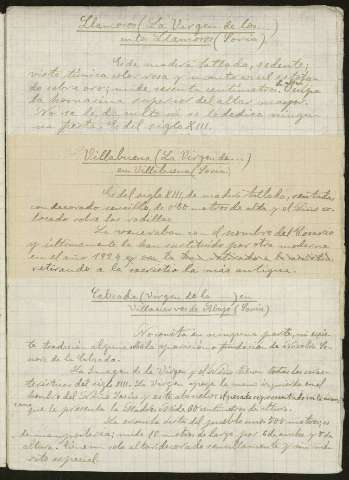 Llamoros (La Virgen de los...)
en Llamoros (Soria)
Es de madera tallada, sedente;
viste túnica color rosa y manto azul estofa-
do sobre oro; mide sesenta centímetros. Ocupa
la hornacina superior del altar mayor.
No se le da culto ni se le dedica ningu-
na fiesta. Es del siglo XIII.
Villabuena (La Virgen de...)
en Villabuena (Soria)
Es del siglo XIII, de madera tallada, sentada
con decorado sencillo, de 0'60 metros de alta y el Niño co-
locado sobre las rodillas.
La veneraban con el nombre del Rosario
y últimamente la han sustituido por otra moderna
en el año 1924 y
retirando a la sacristía la más antigua.
Calzada (Virgen de la ) en
Villaciervos de Abajo (Soria)
No consta en ninguna parte, ni exis-
te tradición alguna sobre la aparición o fundación de Nuestra Se-
ñora de la Calzada.
La Imagen de la Virgen y el Niño tienen todas las carac-
terísticas del siglo XIII. La Virgen apoya la mano izquierda en el
hombro del Niño Jesús y este
que le presenta la Madre. Mide 60 centímetros de altura.
La ermita dista del pueblo unos 500 metros; es
de mampostería; mide 10 metros de larga por 6 de ancha y 5 de
altura. Tiene un solo altar decorado sencillamente y sin mé-
rito especial.